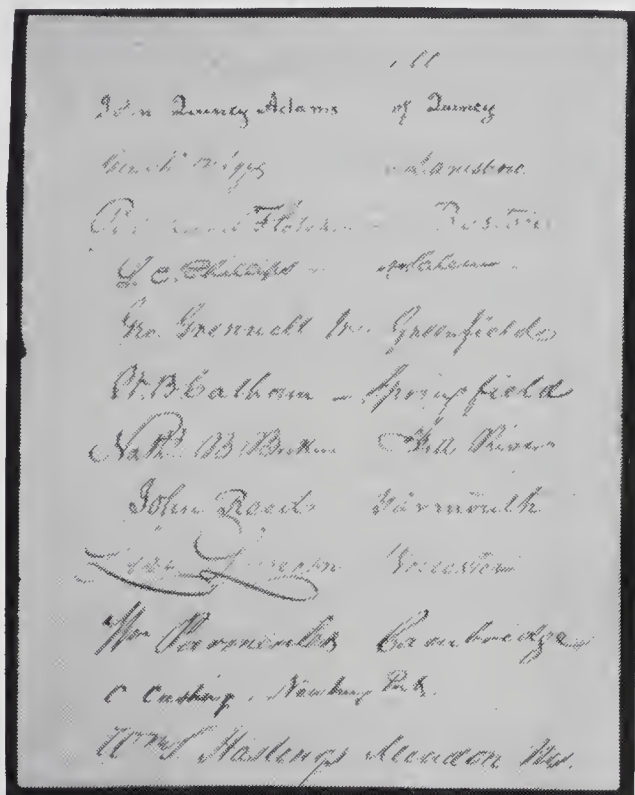 John Quincy Adams of Quincy
Briggs Lanesboro
Richard Fletcher Boston
S. C. Phillips Salem
Geo. Grennell Jr. Greenfield
W. B. Calhoun – Springfield
Nathl B Borden Fall River
John Reed Yarmouth
Levi Lincoln Worcester
Wm Parmenter Cambridge
C Cushing, Newbury Port.
Wm S. Hastings Mendon Ms.